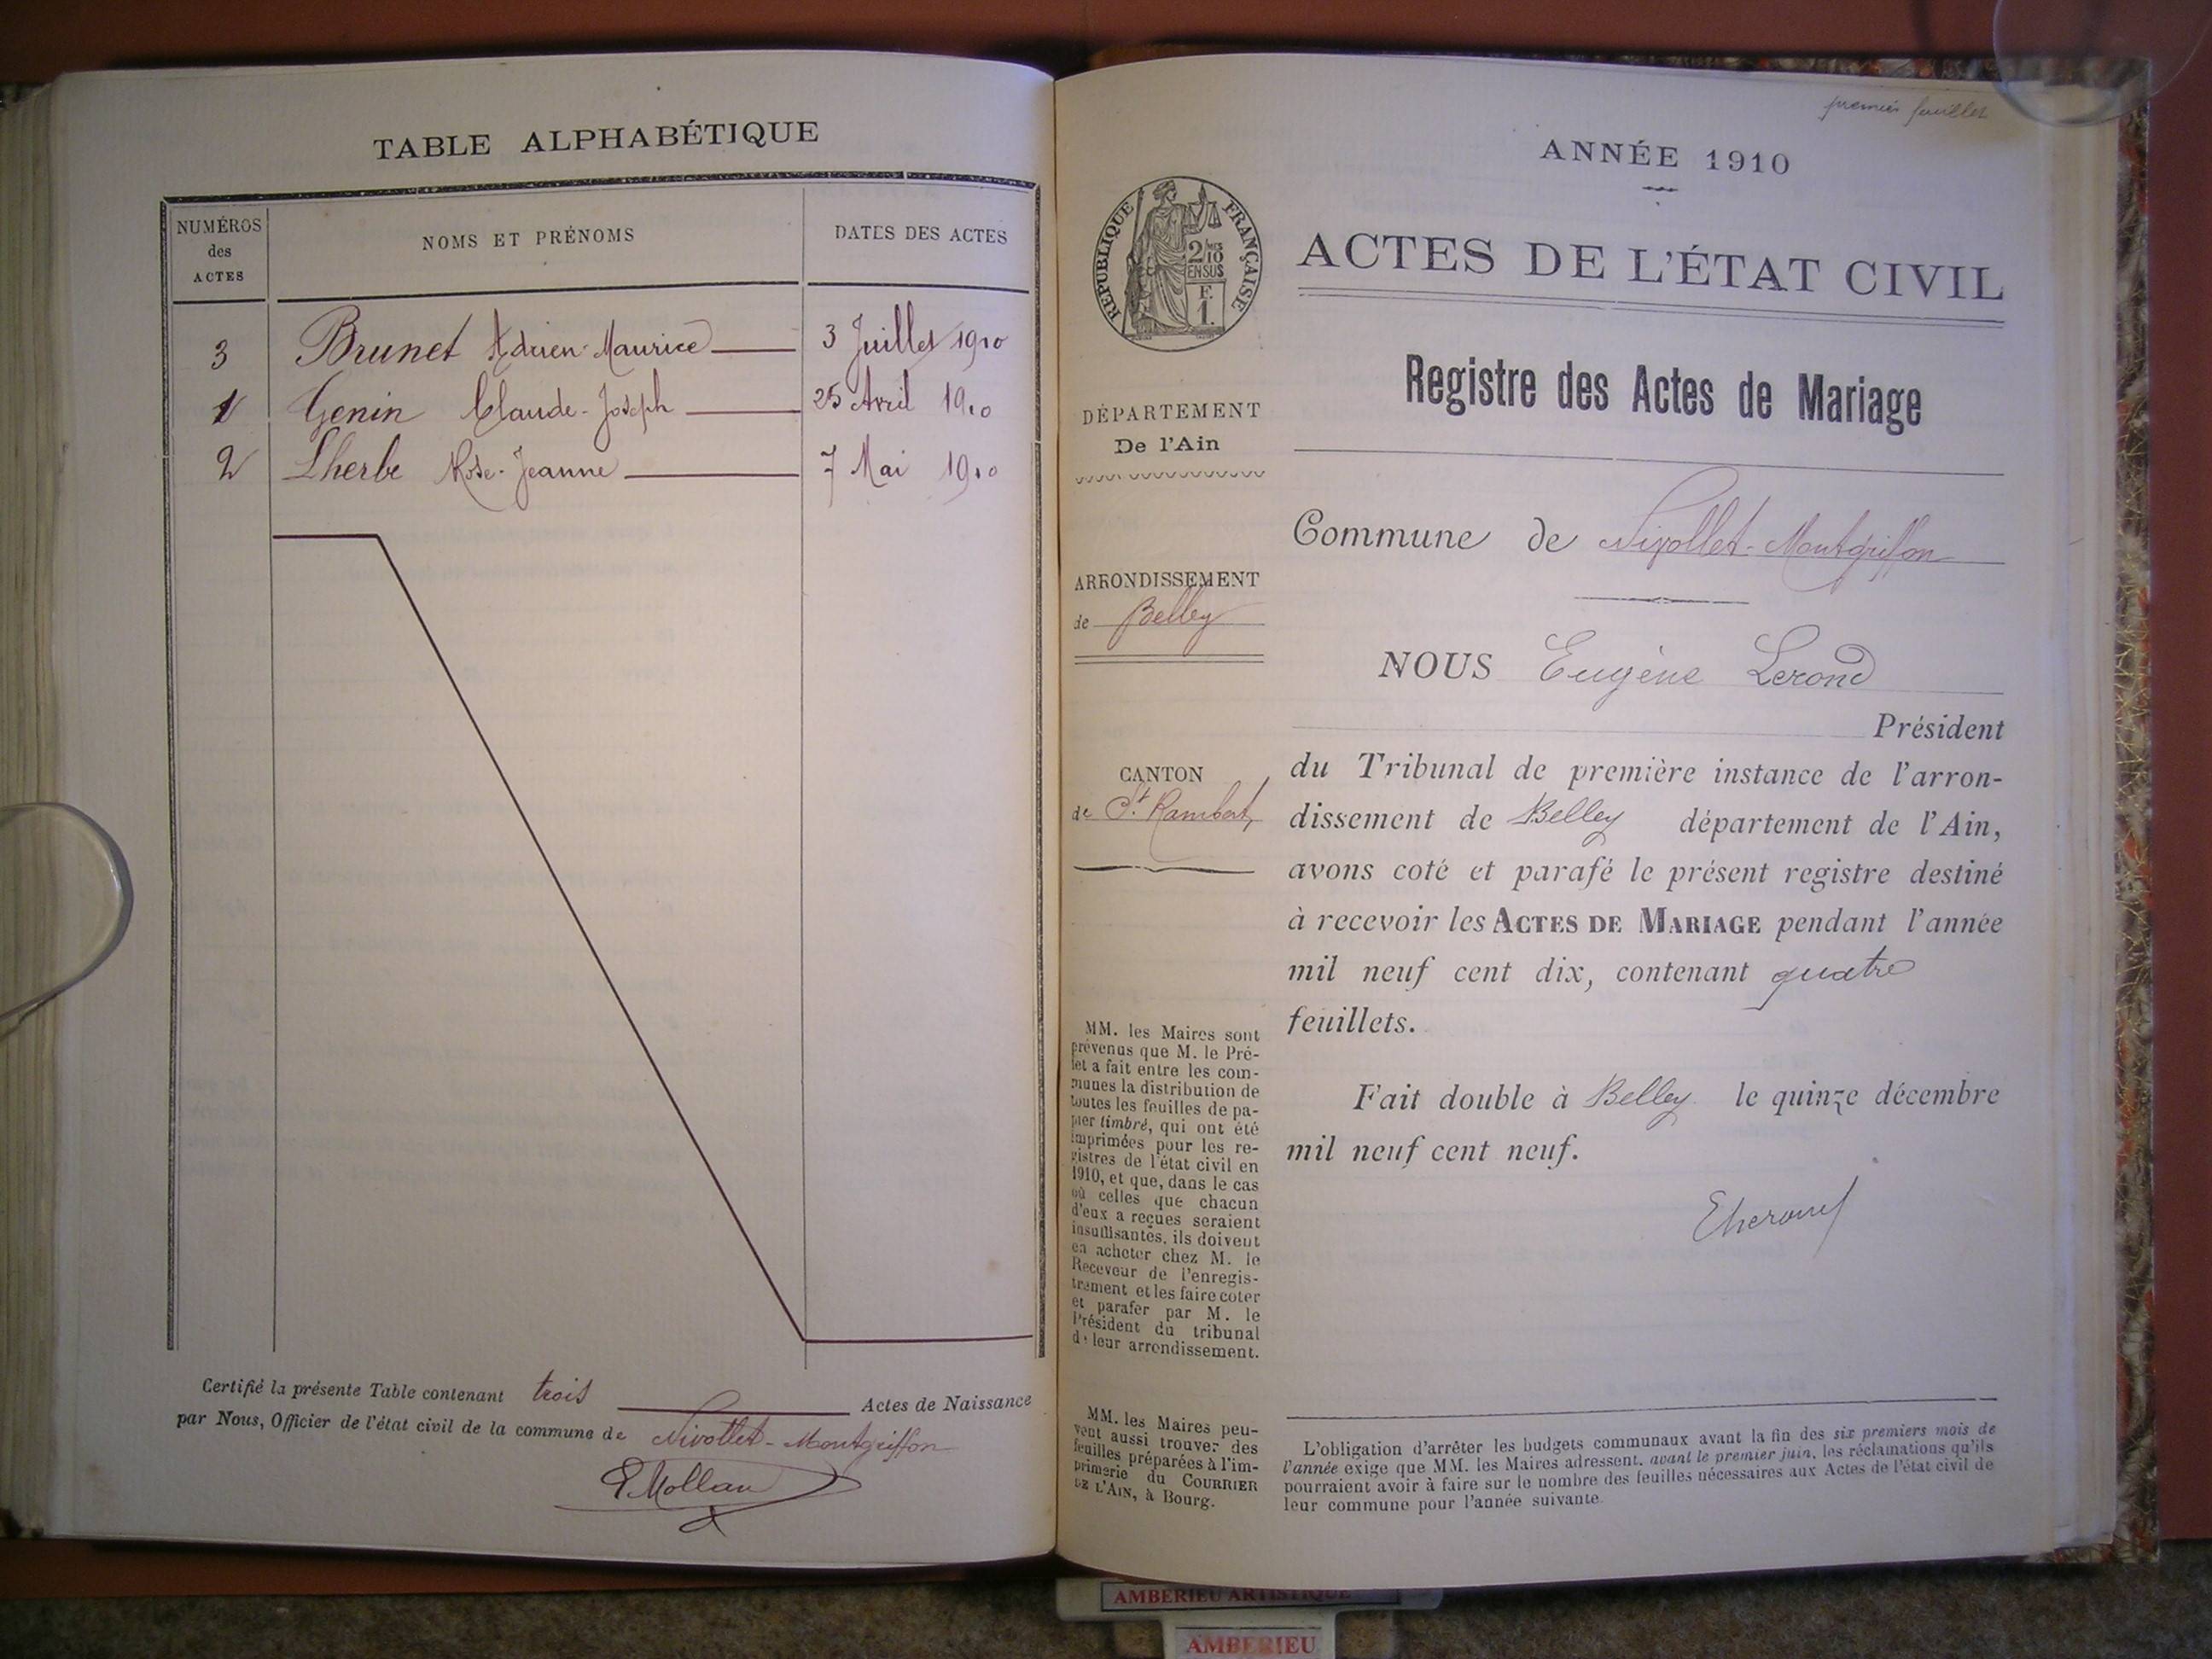 TABLE ALPHABÉTIQUE
NUMÉROS
des
ACTES
NOMS ET PRÉNOMS
DATES DES ACTES
3 Brunet Adrien-Maurice 3 Juillet 1910
1 Genin Claude-Joseph 25 Avril 1910
2 Lherbe Rose-Jeanne 7 Mai 1910
Certifié la présente Table contenant trois Actes de Naissance
par Nous, Officier de l'état civil de la commune de Nivollet-Montgriffon
premier feuillet
ANNÉE 1910
RÉPUBLIQUE FRANÇAISE
2/10
EN SUS
F.
1.
ACTES DE L'ÉTAT CIVIL
Registre des Actes de Mariage
DÉPARTEMENT
De l'Ain
ARRONDISSEMENT
de Belley
CANTON
de St. Rambert
MM. les Maires sont
prévenus que M. le Pré-
fet a fait entre les com-
munes la distribution de
toutes les feuilles de pa-
pier timbré, qui ont été
imprimées pour les re-
gistres de l'état civil en
1910, et que, dans le cas
où celles que chacun
d'eux a reçues seraient
insuffisantes, ils doivent
en acheter chez M. le
Receveur de l'enregis-
trement et les faire coter
et parafer par M. le
Président du tribunal
de leur arrondissement.
MM. les Maires peu-
vent aussi trouver des
feuilles préparées à l'im-
primerie du COURRIER
DE L'AIN, à Bourg.
Commune de Nivollet-Montgriffon
NOUS Eugène Lerond
Président
du Tribunal de première instance de l'arron-
dissement de Belley département de l'Ain,
avons coté et parafé le présent registre destiné
à recevoir les ACTES DE MARIAGE pendant l'année
mil neuf cent dix, contenant quatre
feuillets.
Fait double à Belley le quinze décembre
mil neuf cent neuf.
L'obligation d'arrêter les budgets communaux avant la fin des six premiers mois de
l'année exige que MM. les Maires adressent, avant le premier juin, les réclamations qu'ils
pourraient avoir à faire sur le nombre des feuilles nécessaires aux Actes de l'état civil de
leur commune pour l'année suivante.
AMBERIEU ARTISTIQUE
AMBERIEU